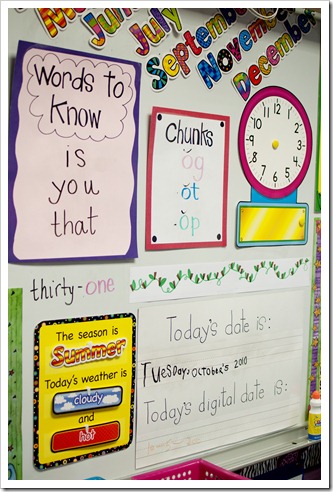 July
September
November
December
Words to
Know
is
you
that
Chunks
ŏg
ŏt
ŏp
thirty-one
The season is
Summer
Today's weather is
cloudy
and
hot
Today's date is:
TUEsday, october 5 2010
Today's digital date is: